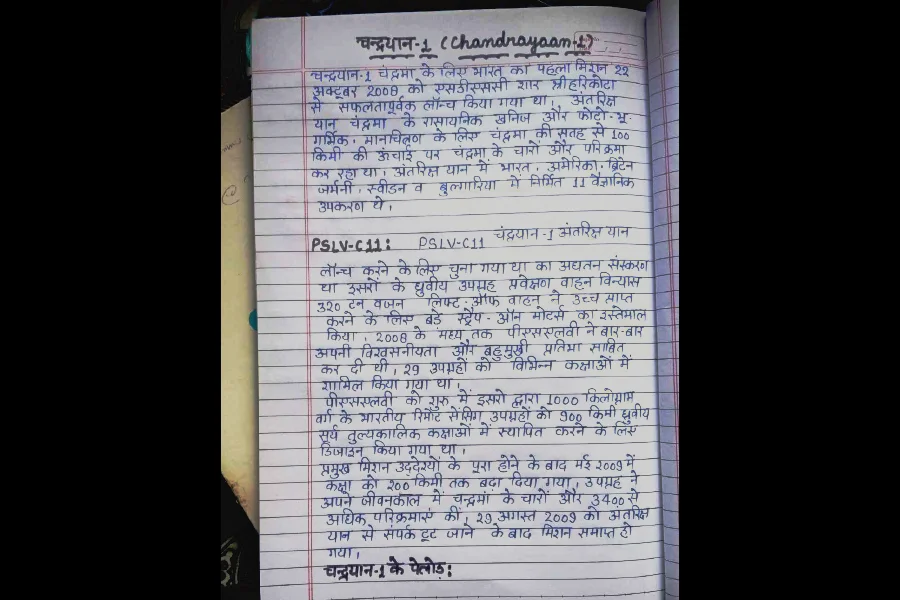 चन्द्रयान-1 (Chandrayaan-1)
चन्द्रयान-1 चंद्रमा के लिए भारत का पहला मिशन 22
अक्टूबर 2008 को एसडीएससी शार श्रीहरिकोटा
से सफलतापूर्वक लॉन्च किया गया था। अंतरिक्ष
यान चंद्रमा के रासायनिक खनिज और फोटो-भू-
गर्भिक, मानचित्रण के लिए चंद्रमा की सतह से 100
किमी की ऊंचाई पर चंद्रमा के चारों और परिक्रमा
कर रहा था। अंतरिक्ष यान में भारत, अमेरिका, ब्रिटेन
जर्मनी, स्वीडन व बुल्गारिया में निर्मित 11 वैज्ञानिक
उपकरण थे।
PSLV-C11: PSLV-C11 चंद्रयान-1 अंतरिक्ष यान
लॉन्च करने के लिए चुना गया था का अद्यतन संस्करण
था इसरो के ध्रुवीय उपग्रह प्रवेक्षण वाहन विन्यास
320 टन वजन लिफ्ट-ऑफ वाहन ने उच्च प्राप्त
करने के लिए बड़े स्ट्रैप-ऑन मोटर्स का इस्तेमाल
किया, 2008 के मध्य तक पीएसएलवी ने बार-बार
अपनी विश्वसनीयता और बहुमुखी प्रतिभा साबित
कर दी थी, 29 उपग्रहों को विभिन्न कक्षाओं में
शामिल किया गया था।
पीएसएलवी को शुरु में इसरो द्वारा 1000 किलोग्राम
वर्ग के भारतीय रिमोट सेंसिंग उपग्रहों को 900 किमी ध्रुवीय
सूर्य तुल्यकालिक कक्षाओं में स्थापित करने के लिए
डिजाइन किया गया था।
प्रमुख मिशन उद्देश्यों के पूरा होने के बाद मई 2009 में
कक्षा को 200 किमी तक बढ़ा दिया गया, उपग्रह ने
अपने जीवनकाल में चन्द्रमा के चारों और 3400 से
अधिक परिक्रमाएं कीं, 29 अगस्त 2009 को अंतरिक्ष
यान से संपर्क टूट जाने के बाद मिशन समाप्त हो
गया।
चन्द्रयान-1 के पेलोड: